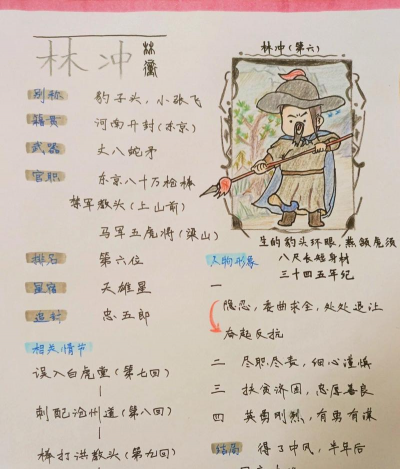 林冲
林冲(第六)
别称 豹子头，小张飞
籍贯 河南开封(东京)
武器 丈八蛇矛
官职 东京八十万枪棒
禁军教头(上山前)
马军五虎将(梁山)
排名 第六位
星宿 天雄星
追封 忠武郎
相关情节
误入白虎堂(第七回)
刺配沧州道(第八回)
棒打洪教头(第九回)
生的豹头环眼，燕颔虎须
八尺长短身材
三十四五年纪
人物形象
一
隐忍，委曲求全，处处退让
奋起反抗
二 尽职尽责，细心谨慎
三 扶贫济困，忠厚善良
四 英勇刚烈，有勇有谋
结局 得了中风，半年后